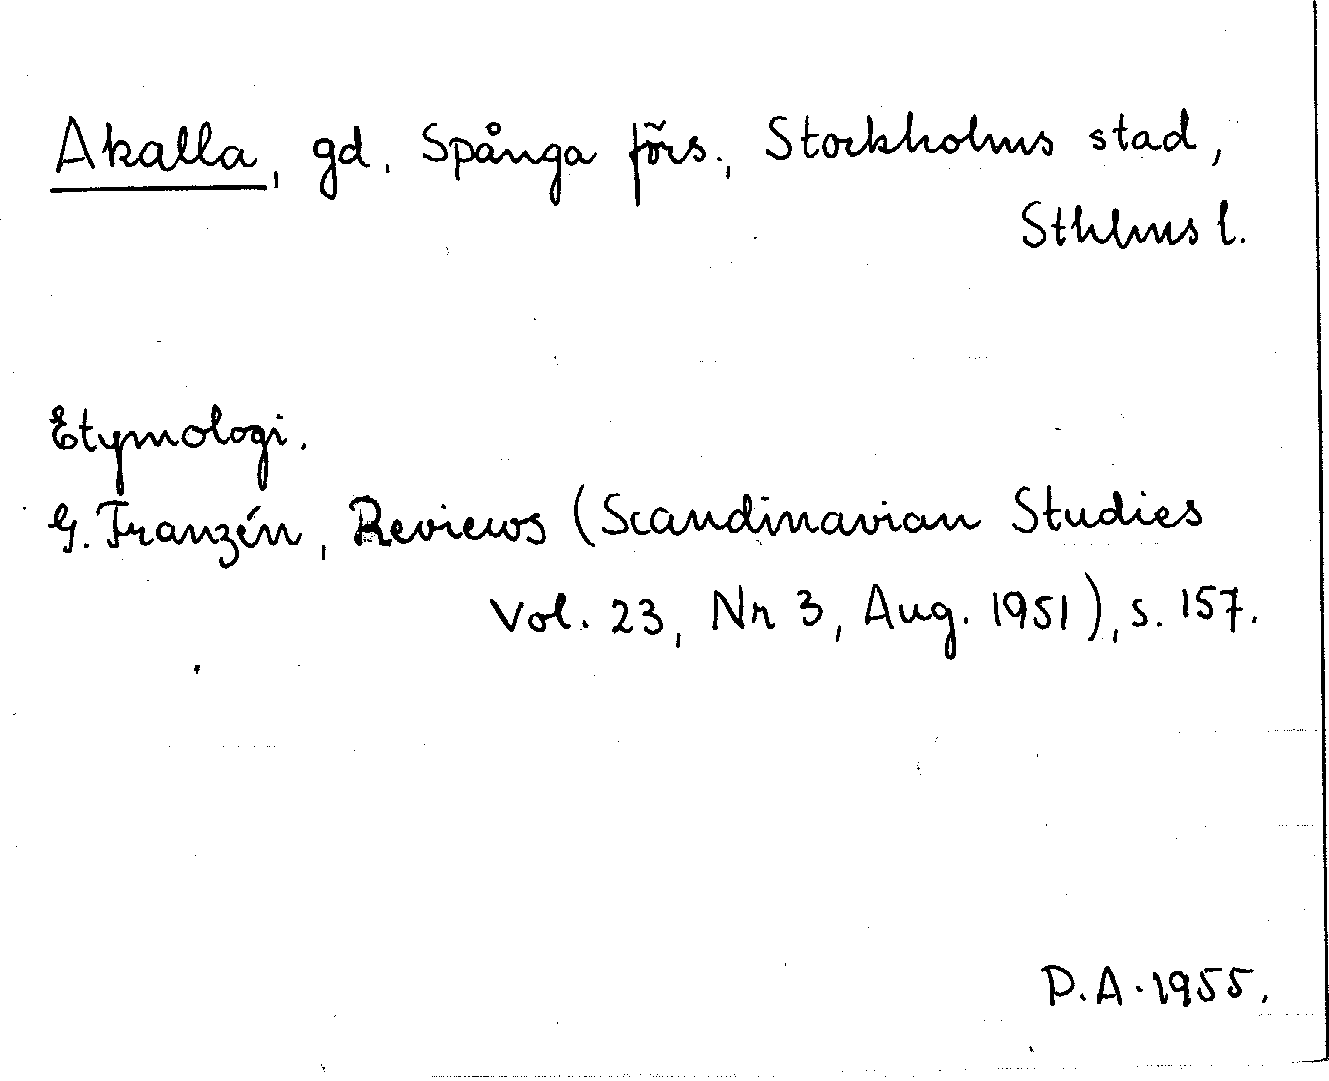 Akalla, gd, Spånga förs., Stockholms stad,
Sthlms l.
Etymologi.
G. Franzén, Reviews (Scandinavian Studies
Vol. 23, Nr 3, Aug. 1951), s. 157.
P.A. 1955.